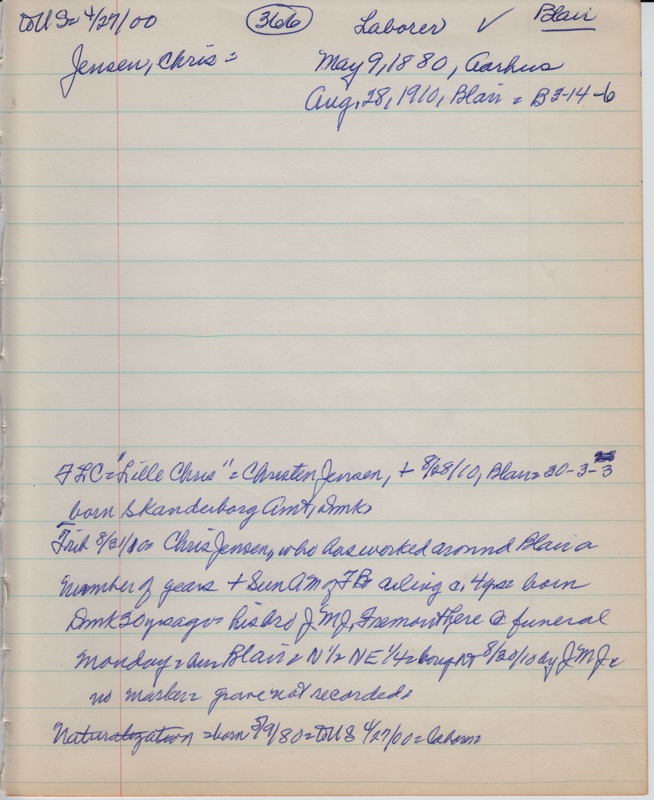 to U S = 4/27/00 366 Laborer ✓ Blair
Jensen, Chris = May 9, 1880, Aarhus
Aug. 28, 1910, Blair = B 2-14-6
FLC = "Lille Chris" = Christen Jensen, + 8/28/10, Blair = 30-3-3
born Skanderborg Amt, Dmk
Trib 8/31/10 = Chris Jensen, who has worked around Blair a
number of years + Sun AM of TB = ailing c. 4 yrs = born
Dmk 30 yrs ago = his bro J.M.J, Fremont here @ funeral
Monday = bur Blair = N 1/2 NE 1/4 = bought 8/30/10 by J M J =
no marker = grave not recorded =
Naturalization = born 5/9/80 = to U S 4/27/00 = laborer